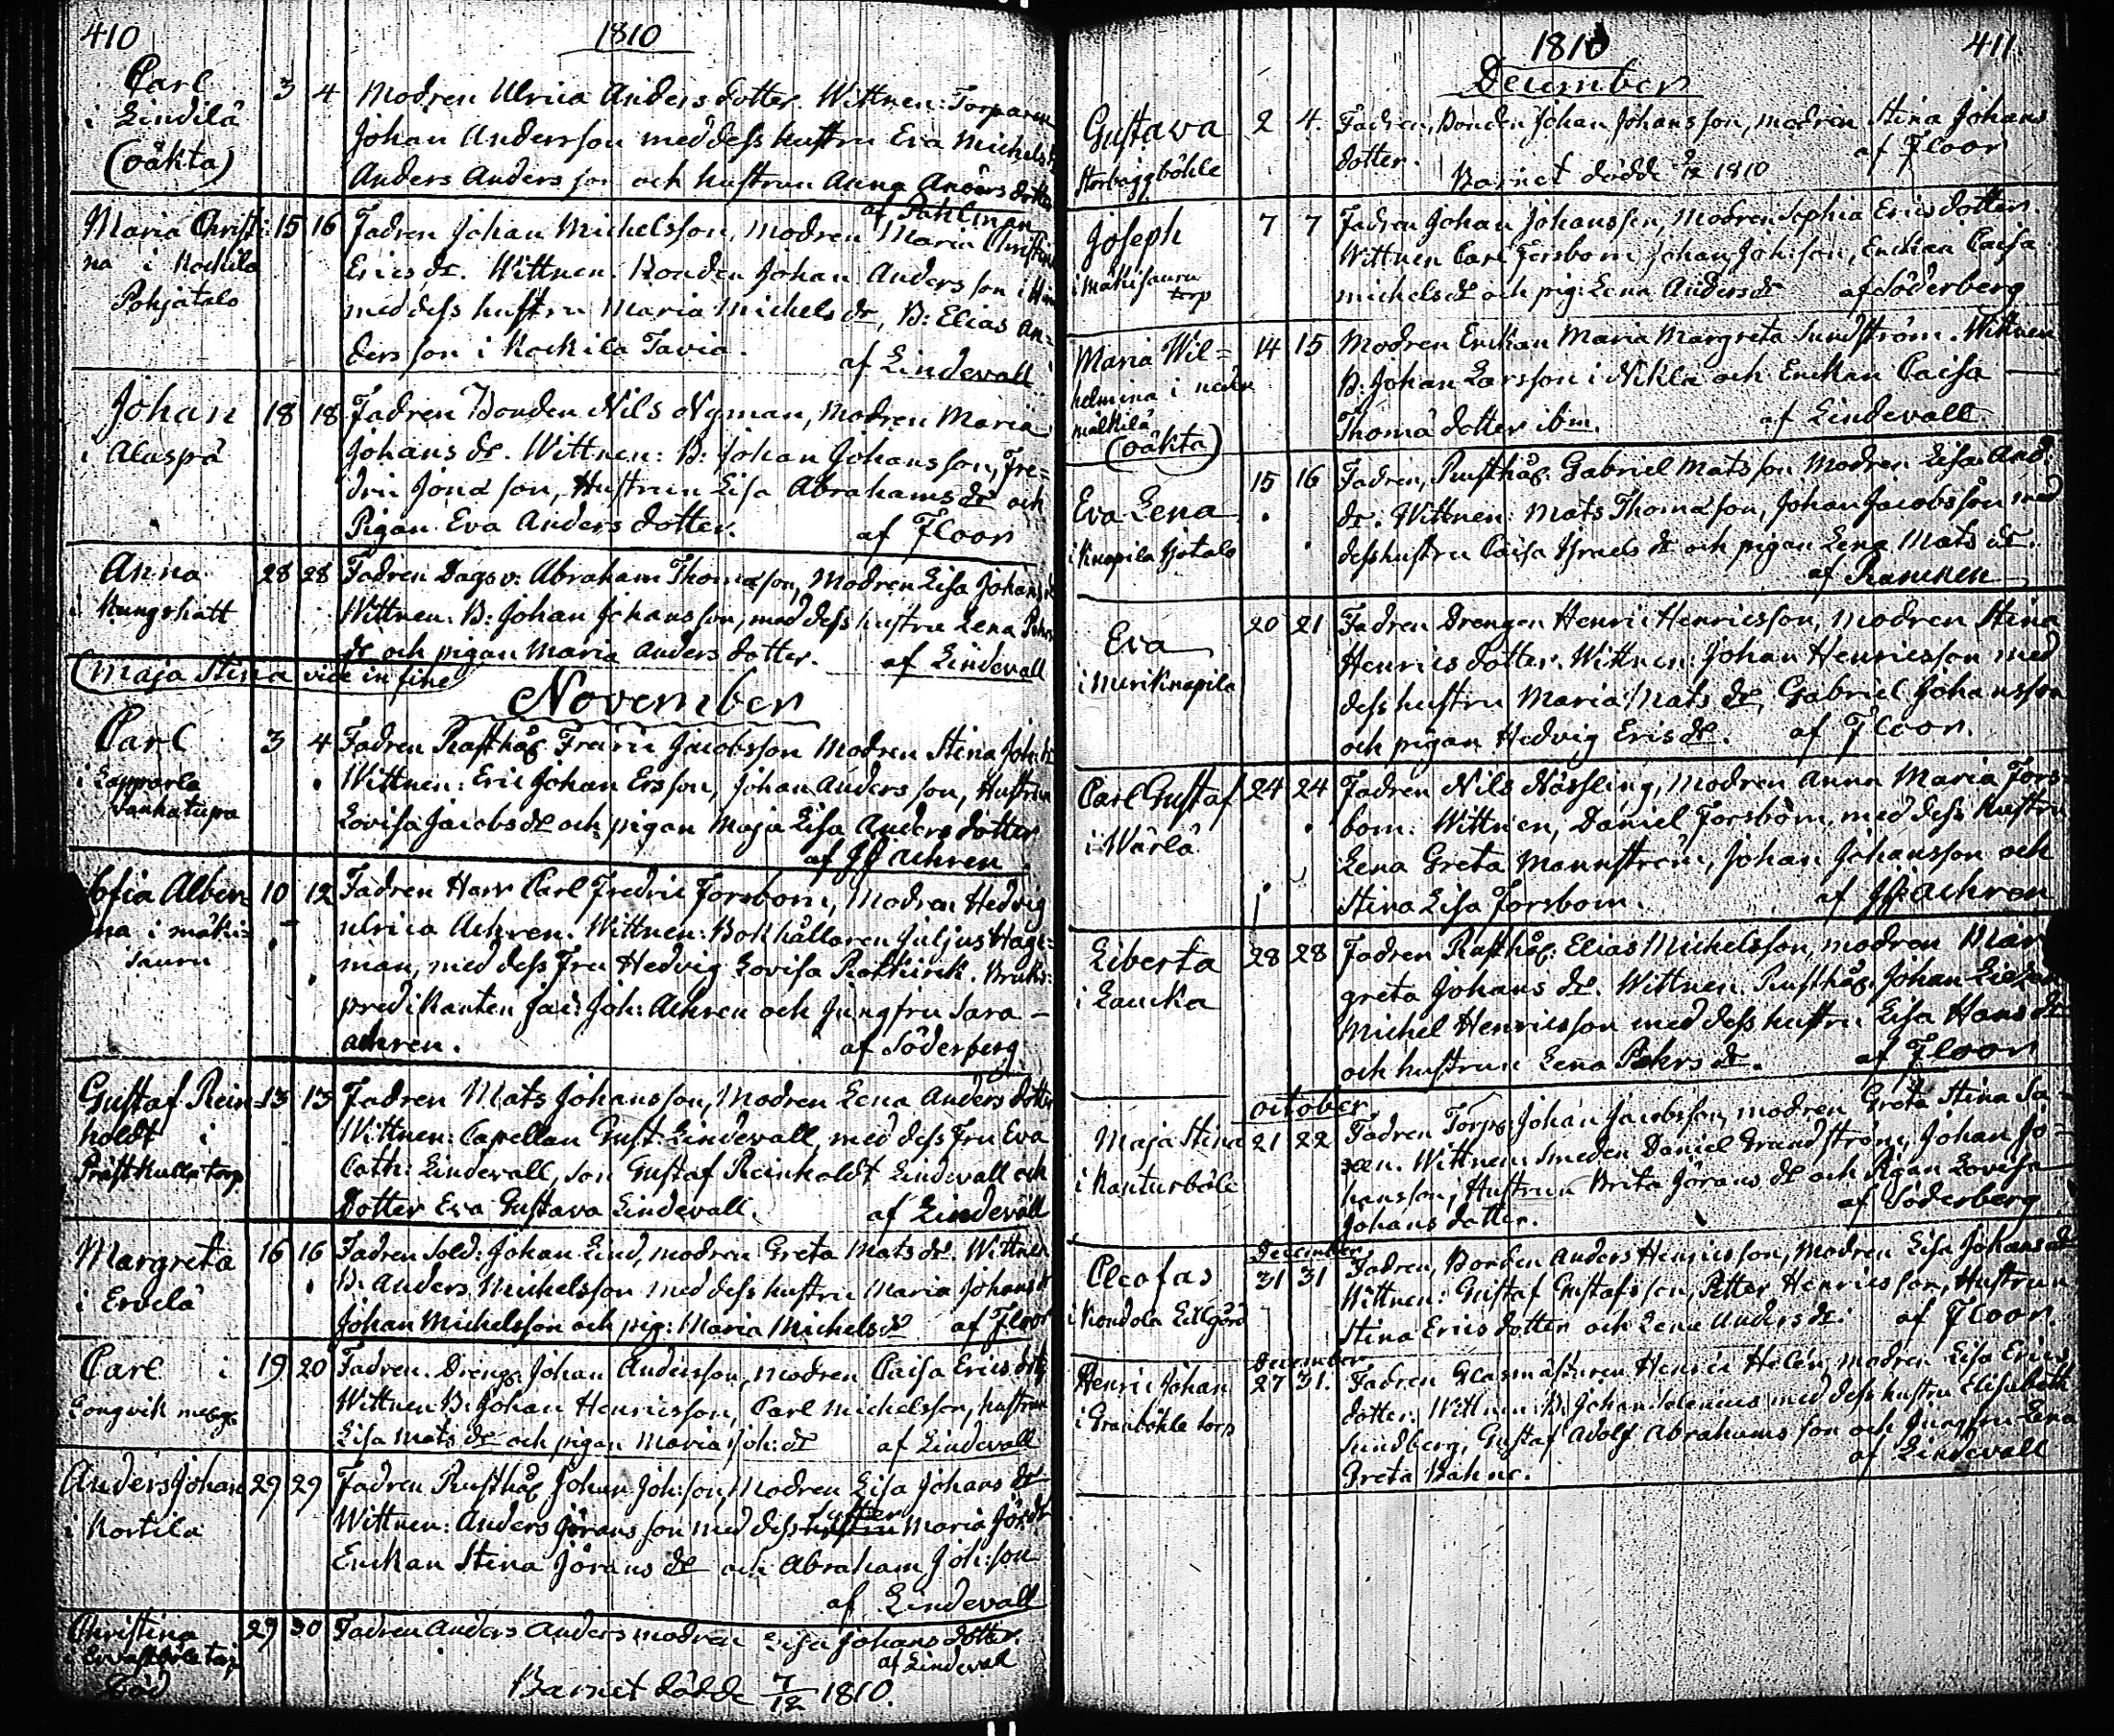 410
1810
Carl 3 4 Modren Ulrica Anders dotter. Wittnen: Torparen
i Lindilä Johan Andersson med dess hustru Eva Michels
(oäkta) Anders Andersson och hustrun Anna Anders dotter
af Pahlman
Maria Christi: 15 16 Fadren Johan Michelsson, Modren Maria Christina
na i Kockila Erics dr. Wittnen: Bonden Johan Andersson i
Pohjatalo med dess hustru Maria Michels dr, B: Elias An=
dersson i Kockila Tavia.
af Lindevall
Johan 18 18 Fadren Bonden Nils Nyman, Modren Maria
i Alaspä Johans dr. Wittnen: B: Johan Johansson, Fre=
dric Jonasson, Hustrun Lisa Abrahams dr och
Pigan Eva Anders dotter. af Floor
Anna 28 28 Fadren Dagsv: Abraham Thomasson, Modren Lisa Johans
i Kungshatt Wittnen: B: Johan Johansson, med dess hustru Lena
dr och pigan Maria Anders dotter. af Lindevall
(Maja Stina vide in fine)
November
Carl 3 4 Fadren Rusthål: Fredric Jacobsson Modren Stina Joh: dr
i Lapparla Wittnen: Eric Johan Ersson, Johan Andersson, Hustrun
Vanhatupa Lovisa Jacobs dr och pigan Maja Lisa Anders dotter
af JJ Achren
Sofia Alber= 10 12 Fadren Herr Carl Fredric Forsbom, Modren Hedvig
na i mäki= Ulrica Achren. Wittnen: Bokhållaren Juljus Hag=
sauru man, med dess Fru Hedvig Lovisa Rothkirck. Bruks:
predikanten Jac: Joh: Achren och Jungfru Sara
Achren. af Söderberg
Gustaf Rein= 13 13 Fadren Mats Johansson, Modren Lena Anders dotter
holdt i Wittnen: Capellan Gust: Lindevall, med dess Fru Eva
Prästkulla torp Cath: Lindevall, son Gustaf Reinholdt Lindevall och
Dotter Eva Gustava Lindevall. af Lindevall
Margreta 16 16 Fadren Sold: Johan Lind, modren Greta Mats dr. Wittnen
i Ervelä B: Anders Michelsson med dess hustru Maria Johans dr
Johan Michelsson och pig: Maria Michels dr af Floor
Carl i 19 20 Fadren. Dreng: Johan Andersson, modren Caisa Erics dotter
Longvik Wittnen B: Johan Henricsson, Carl Michelsson, hustrun
Lisa Mats dr och pigan Maria Joh: dr af Lindevall
Anders Johan 29 29 Fadren Rusthål: Johan Joh:son, Modren Lisa Johans dr
i Kortila Wittnen: Anders Göransson med dess hustru Maria Jör dr
Enckan Stina Jörans dr och Abraham Joh:son
af Lindevall
Christina 29 30 Fadren Anders Anders modren Lisa Johans dotter.
af Lindevall
Död Barnet dödde 7/12 1810.
1810
411
December
Gustava 2 4. Fadren, Bonden Johan Johansson, modren Stina Johans
Storbåggböhle dotter. af Floor
Barnet dödde 1810
Joseph 7 7 Fadren Johan Johansson, Modren Sophia Erics dotter.
i mäkisauru Wittnen Carl Forsbom, Johan Joh:son, Enckan Caisa
torp Michels dr och pig: Lena Anders dr af Söderberg
Maria Wil= 14 15 Modren Enckan Maria Margreta Sundström. Wittnen
helmina i neder B: Johan Larsson i Nikla och Enckan Caisa
mälkilä Thoma dotter ibm. af Lindevall
(oäkta)
Eva Lena 15 16 Fadren, Rusthål: Gabriel Matsson Modren Lisa And:
i Knapila Isotalo dr. Wittnen: Mats Thomasson, Johan Jacobsson med
dess hustru Caisa Israels dr och pigan Lena Mats dr.
af
Eva 20 21 Fadren Drengen Henric Henricsson, Modren Stina
i Muriknapila Henrics dotter. Wittnen: Johan Henricsson med
dess hustru Maria Mats dr, Gabriel Johansson
och pigan Hedvig Erics dr. af Floor.
Carl Gustaf 24 24 Fadren Nils Nässling, modren Anna Maria Fors=
i Wärlä bom: Wittnen, Daniel Forsbom med dess hustru
Lena Greta Mannström, Johan Johansson och
Stina Lisa Forsbom. af JJ Achren
Liberta 28 28 Fadren Rusthål: Elias Michelsson, modren Mar
i Laucka greta Johans dr. Wittnen. Rusthål: Johan
Michel Henricsson med dess hustru Lisa Hans dr
och hustrun Lena Peters dr. af Floor
october
Maja Stina 21 22 Fadren Torp: Johan Jacobsson, modren Greta Stina Sa=
i Kanturböle xen. Wittnen: Smeden Daniel Grundström, Johan Jo=
hansson, Hustrun Brita Jörans dr och Pigan Lovisa
Johans dotter. af Söderberg
December
Cleofas 31 31 Fadren, Bonden Anders Henricsson, Modren Lisa Johans dr
i Kondola Lillgård Wittnen: Gustaf Gustafsson, Petter Henricsson, Hustrun
Stina Erics dotter och Lena Anders dr. af Floor.
December
Henric Johan 27 31. Fadren Glasmästaren Henric Helén, modren Lisa Erics
i Granböhle torp dotter. Wittnen: B: Johan Selenius med dess hustru Elisabeth
Sundberg, Gustaf Adolf Abrahamsson och Jungfru Lena
Greta Bahne. af Lindevall